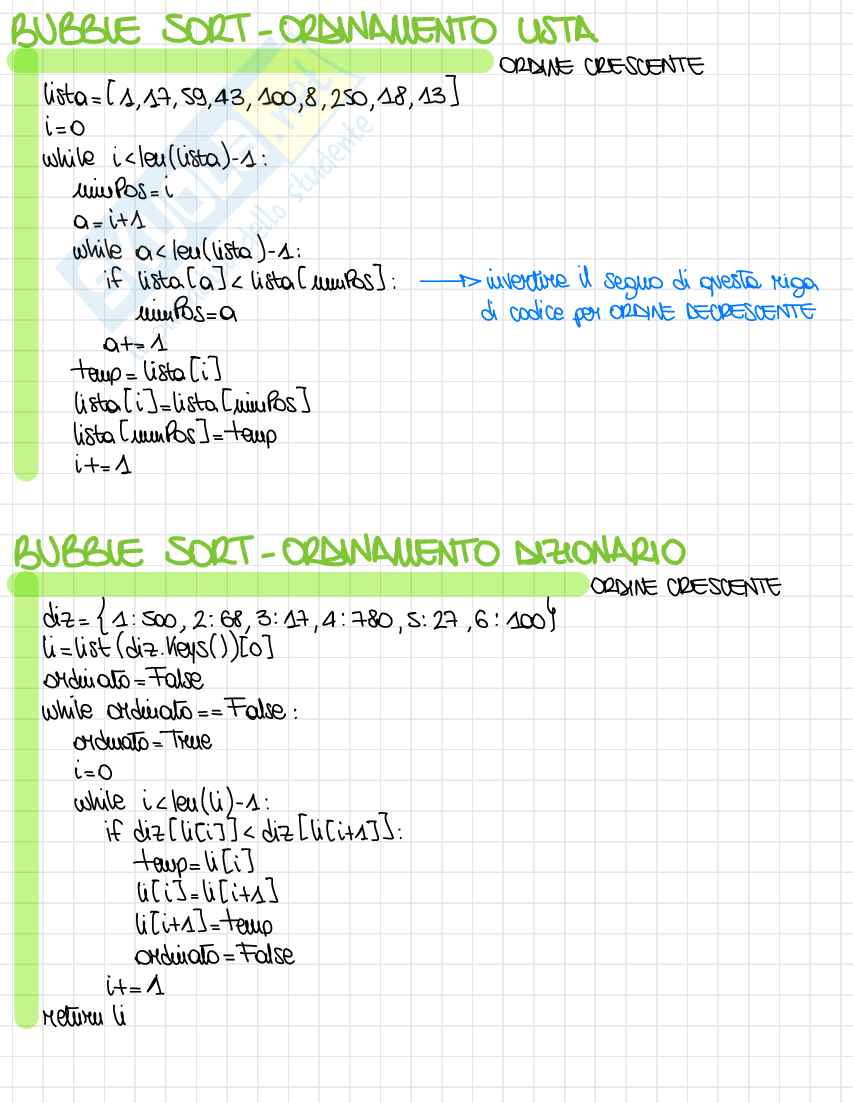 BUBBLE SORT - ORDINAMENTO LISTA
ORDINE CRESCENTE
lista=[1,17,59,43,100,8,250,18,13]
i=0
while i<len(lista)-1:
minPos=i
a=i+1
while a<len(lista)-1:
if lista[a]<lista[minPos]: → invertire il segno di questa riga
di codice per ORDINE DECRESCENTE
minPos=a
a+=1
temp=lista[i]
lista[i]=lista[minPos]
lista[minPos]=temp
i+=1
BUBBLE SORT - ORDINAMENTO DIZIONARIO
ORDINE CRESCENTE
diz={1:500, 2:68, 3:17, 4:780, 5:27, 6:100}
li=list(diz.keys())[0]
ordinato=False
while ordinato==False:
ordinato=True
i=0
while i<len(li)-1:
if diz[li[i]]<diz[li[i+1]]:
temp=li[i]
li[i]=li[i+1]
li[i+1]=temp
ordinato=False
i+=1
return li